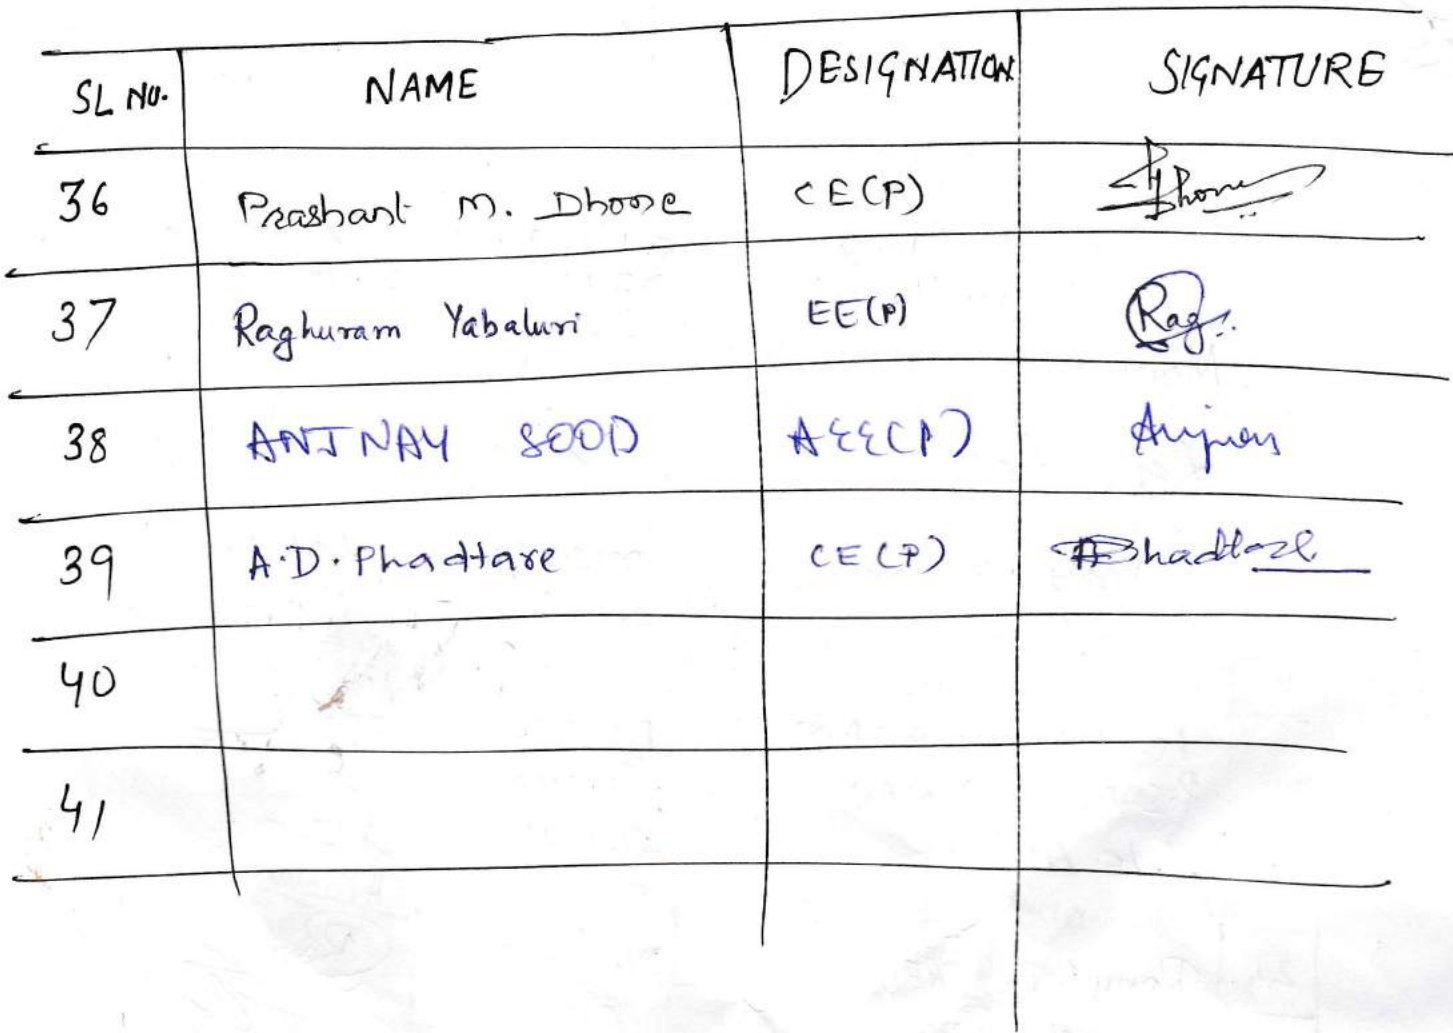 SL NO. NAME DESIGNATION SIGNATURE
36 Prashant M. Dhore CE(P) Dhore
37 Raghuram Yabaluri EE(P) Rag
38 ANJNAY SOOD AEE(P)
39 A.D. Phadtare CE(P) Phadtare
40
41